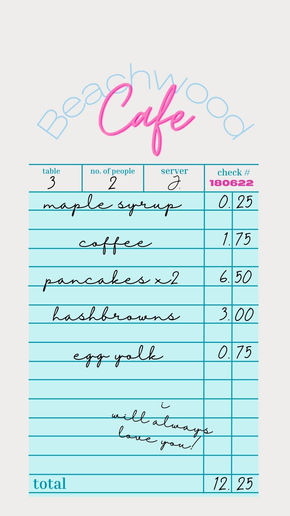 Beachwood
Cafe
table no. of people server check #
3 2 J 180622
maple syrup 0.25
coffee 1.75
pancakes x2 6.50
hashbrowns 3.00
egg yolk 0.75
i
will always
love you!
total 12.25